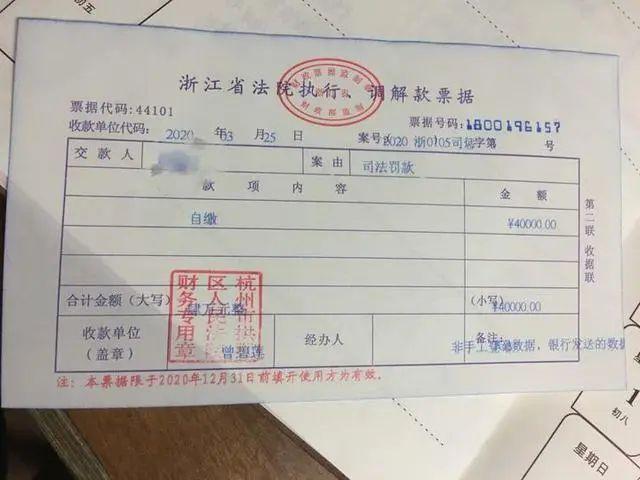 初五
财政票据监制章
财政部监制
浙江省法院执行、调解款票据
票据代码:44101
票据号码:1800196157
收款单位代码: 2020 年 03 月 25 日
案号(2020 浙0105司惩字第 号
交款人
案由
司法罚款
款项内容
金额
自缴
¥40000.00
第二联 收据联
合计金额(大写) 肆万元整
(小写) ¥40000.00
杭州市拱墅区人民法院财务专用章
收款单位
(盖章)
曾碧莲
经办人
备注:
非手工 数据, 银行发送的数据
注: 本票据限于2020年12月31日前填开使用方为有效。
1
初八
星期日